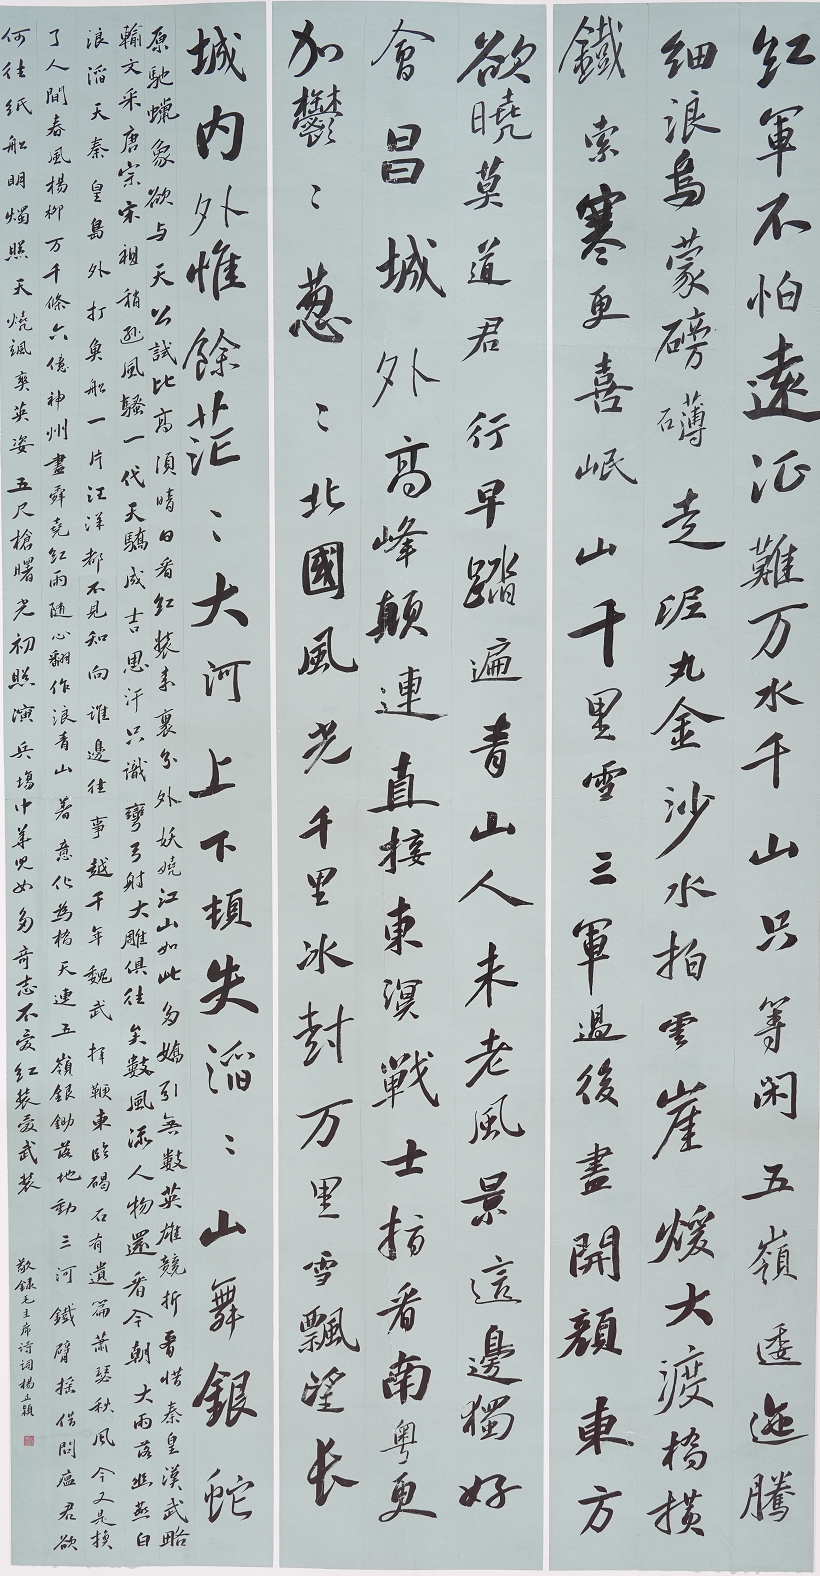 红軍不怕遠征難万水千山只等閑五嶺逶迤騰
细浪烏蒙磅礴走泥丸金沙水拍雲崖煖大渡橋横
鐵索寒更喜岷山千里雪三軍過後盡開顔東方
欲曉莫道君行早踏遍青山人未老風景這邊獨好
會昌城外高峰顛連直接東溟戰士指看南粤更
加鬱〻葱〻北國風光千里冰封万里雪飄望长
城内外惟餘茫〻大河上下頓失滔〻山舞銀蛇
原馳蠟象欲与天公試比高須晴日看红装素裹分外妖嬈江山如此多嬌引無數英雄競折惜秦皇漢武略
輸文采唐宗宋祖稍遜風騷一代天驕成吉思汗只識彎弓射大雕俱往矣數風流人物還看今朝大雨落幽燕白
浪滔天秦皇島外打魚船一片汪洋都不見知向誰邊往事越千年魏武揮鞭東臨碣石有遺篇蕭瑟秋風今又是换
了人間春風楊柳万千條六億神州盡舜堯红雨随心翻作浪青山着意化為橋天連五嶺銀鋤落地動三河鐵臂摇借問瘟君欲
何往纸船明燭照天燒颯爽英姿五尺槍曙光初照演兵場中華兒女多奇志不愛红装愛武装
敬録毛主席诗词楊正